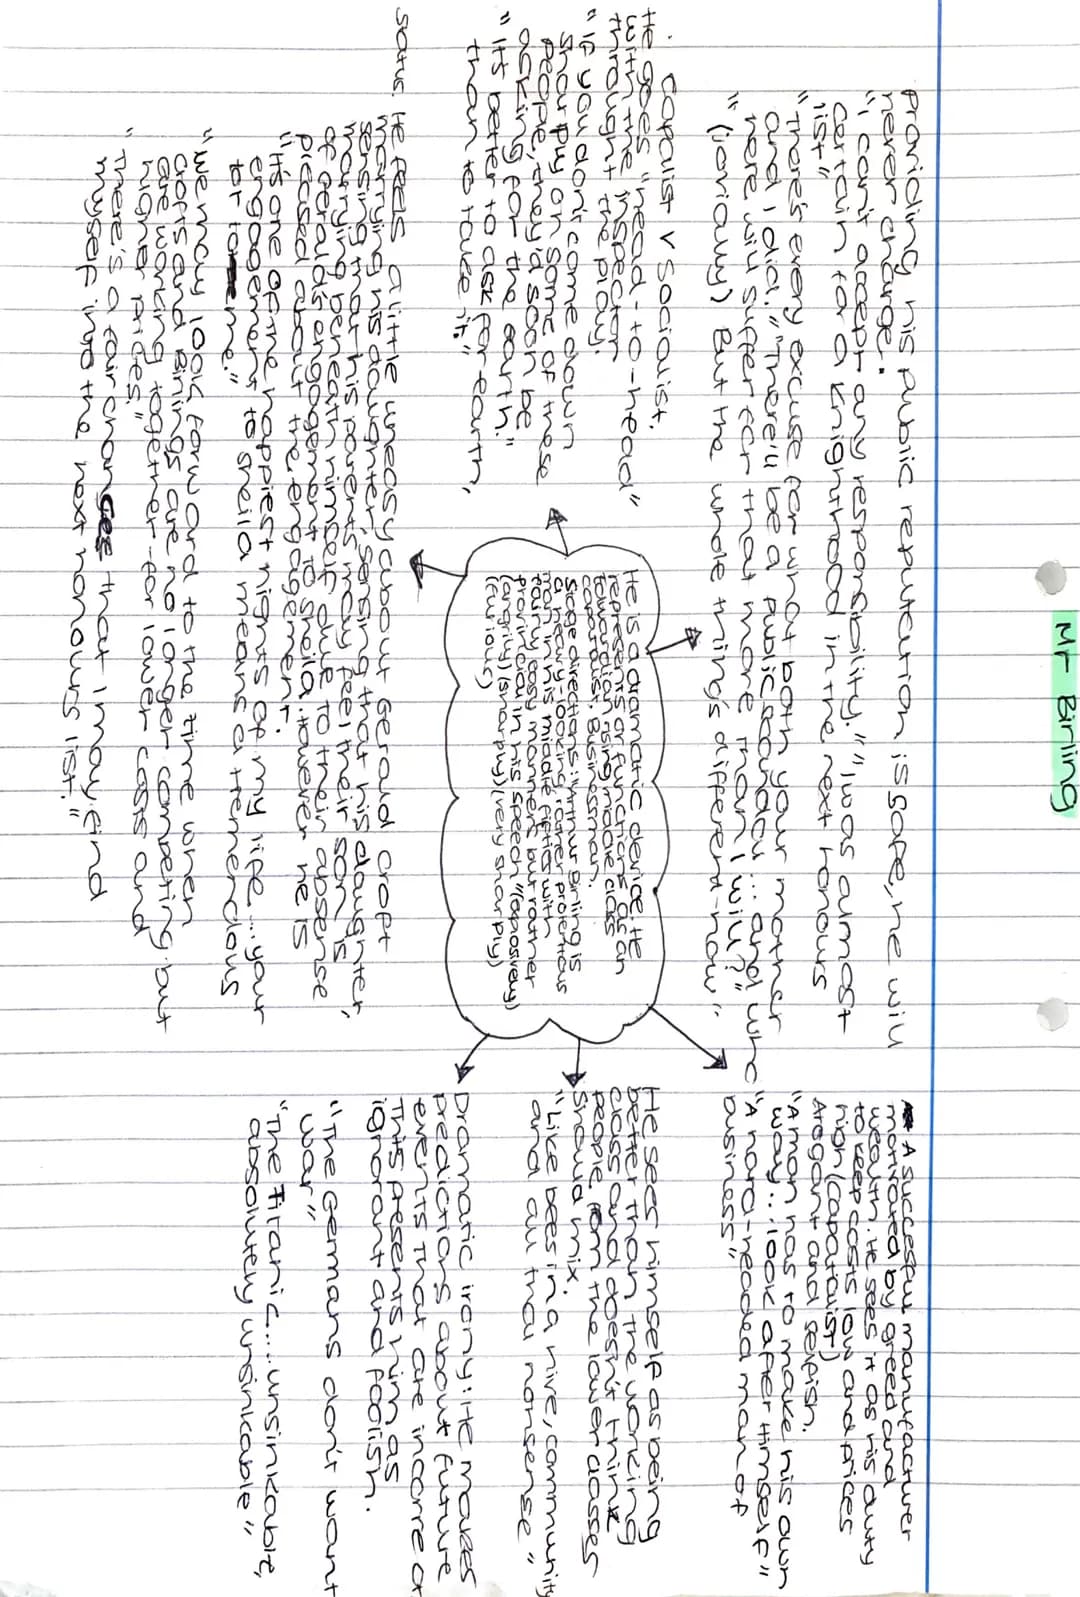 Mr Birling
Providing his public reputation is safe, he will
never change.
"I can't accept any responsibility." "I was almost
certain for a knighthood in the next honours
list"
"There's every excuse for what both your mother
and I did." "There'll be a public scandal... and who
here will suffer for that more than I will?"
"(joviously) But the whole thing's different now".
Capalist v Socialist.
He goes "head-to-head"
with the inspector
throught the play.
"If you don't come down
sharply on some of these
people, they'd soon be
asking for the earth."
"It's better to ask for earth,
than to take it."
He is a dramatic device. He
represents or functions as an
Edwardian rising middle class
capatalist. Businessman.
Stage directions: "Arthur Birling is
a heavy-looking, rather protentous
man in his middle fifties with
fairly easy manners but rather
provincial in his speech "(eposively)
(angrily)(sharply)(very sharply)
(furious)
He feels a little uneasy about Gerald Croft
marrying his daughter, sensing that his daughter,
sensing that his parents may feel their son is
marrying beneath himself due to their absense
of Gerald's engagement to Sheila. However he is
pleased about the engagement.
"It's one of the happiest nights of my life.... your
engagement to Sheila means a tremendous
lot to me."
"We may look forward to the time when
Crofts and Birlings are no longer competing but
are working together - for lower costs and
higher prices."
"There's a fair chances that I may find
myself into the next honours list."
A successful manufacturer
motivated by greed and
wealth. He sees it as his duty
to keep costs low and prices
high (capatalist)
Arogant and selfish.
"A man has to make his own
way... look after himself"
"A hard-headed man of
business"
He sees himself as being
better than the working
class and doesn't think
people from the lower classes
should mix.
"Like bees in a hive, community
and all that nonsense"
Dramatic irony: He makes
predictions about future
events that are incorrect
This presents him as
ignorant and foolish.
"The Germans don't want
war"
"The Titanic.... unsinkable,
absolutely unsinkable"